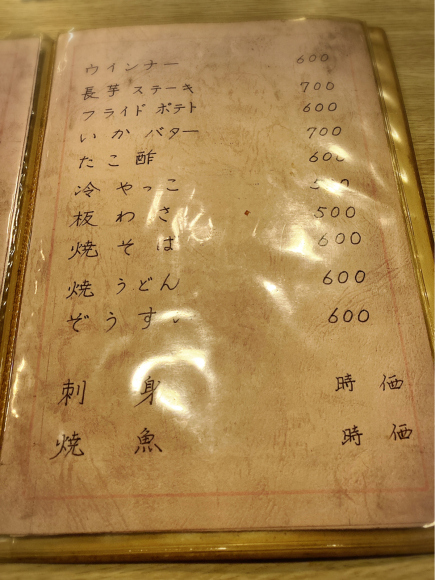 ウインナー 600
長芋ステーキ 700
フライドポテト 600
いかバター 700
たこ酢 600
冷やっこ
板わさ 500
焼そば 600
焼うどん 600
ぞうすい 600
刺身 時価
焼魚 時価